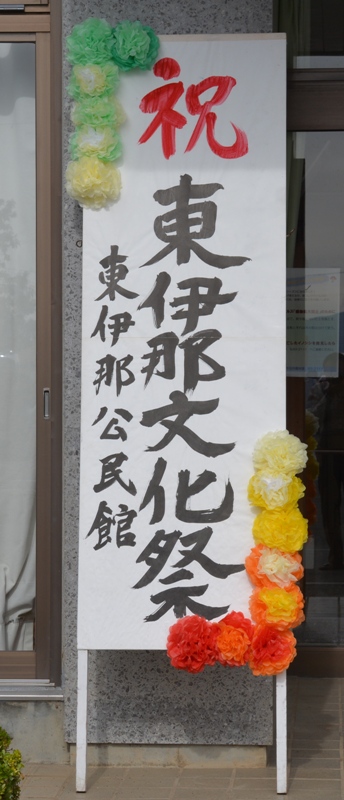 祝
東伊那文化祭
東伊那公民館